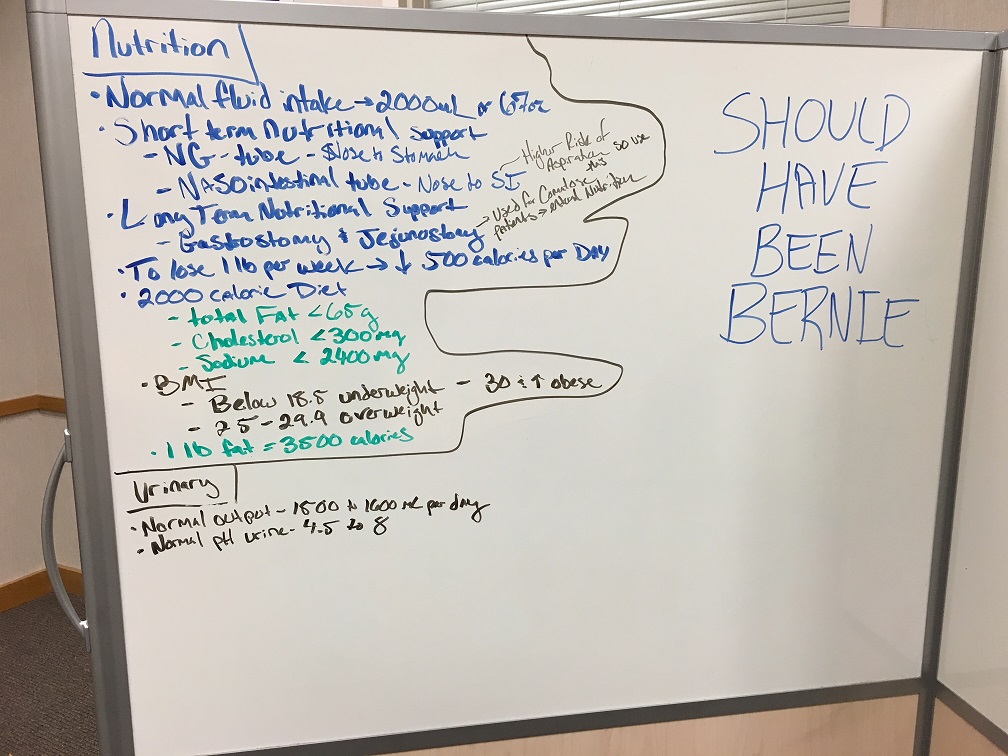 Nutrition
• Normal fluid intake → 2000mL or 67oz
• Short term Nutritional Support
- NG-tube - Nose to Stomach
- Nasointestinal tube - Nose to SI
- Higher Risk of
Aspiration so use
this
• Long Term Nutritional Support
- Gastrostomy & Jejunostomy
→ Used for Comatose
patients → enteral Nutrition
• To lose 1 lb per week → ↓ 500 calories per Day
• 2000 calorie Diet
- total Fat < 65g
- Cholesterol < 300mg
- Sodium < 2400mg
• BMI
- Below 18.5 underweight - 30 & ↑ obese
- 25 - 29.9 overweight
• 1 lb fat = 3500 calories
Urinary
• Normal output - 1500 to 1600 mL per day
• Normal pH urine - 4.5 to 8
SHOULD
HAVE
BEEN
BERNIE